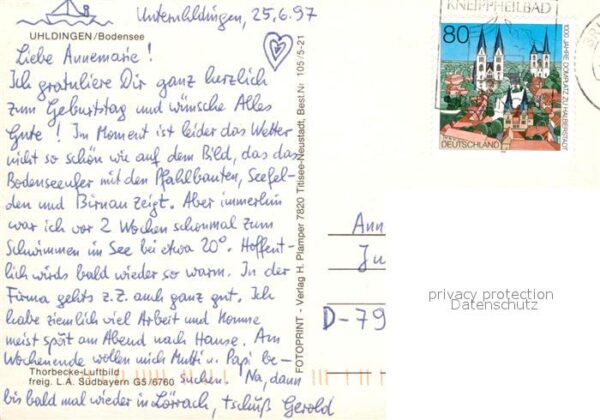 Unteruhldingen, 25.6.97
UHLDINGEN/Bodensee
Liebe Annemarie!
Ich gratuliere Dir ganz herzlich
zum Geburtstag und wünsche Alles
Gute! Im Moment ist leider das Wetter
nicht so schön wie auf dem Bild, das das
Bodenseeufer mit den Pfahlbauten, Seefel-
den und Birnau zeigt. Aber immerhin
war ich vor 2 Wochen schonmal zum
Schwimmen im See bei etwa 20°. Hoffent-
lich wirds bald wieder so warm. In der
Firma gehts z.Z. auch ganz gut. Ich
habe ziemlich viel Arbeit und komme
meist spät am Abend nach Hause. Am
Wochenende wollen mich Mutti u. Papi be-
Thorbecke-Luftbild
freig. L.A. Südbayern G5/6760
suchen. Na, dann
bis bald mal wieder in Lörrach, tschuß Gerold
FOTOPRINT - Verlag H. Plamper 7820 Titisee-Neustadt, Best.Nr 105/5-21
KNEIPPHEILBAD
80
1000 JAHRE DOMPLATZ ZU HALBERSTADT
DEUTSCHLAND
Ann
Ju
D-79
privacy protection
Datenschutz